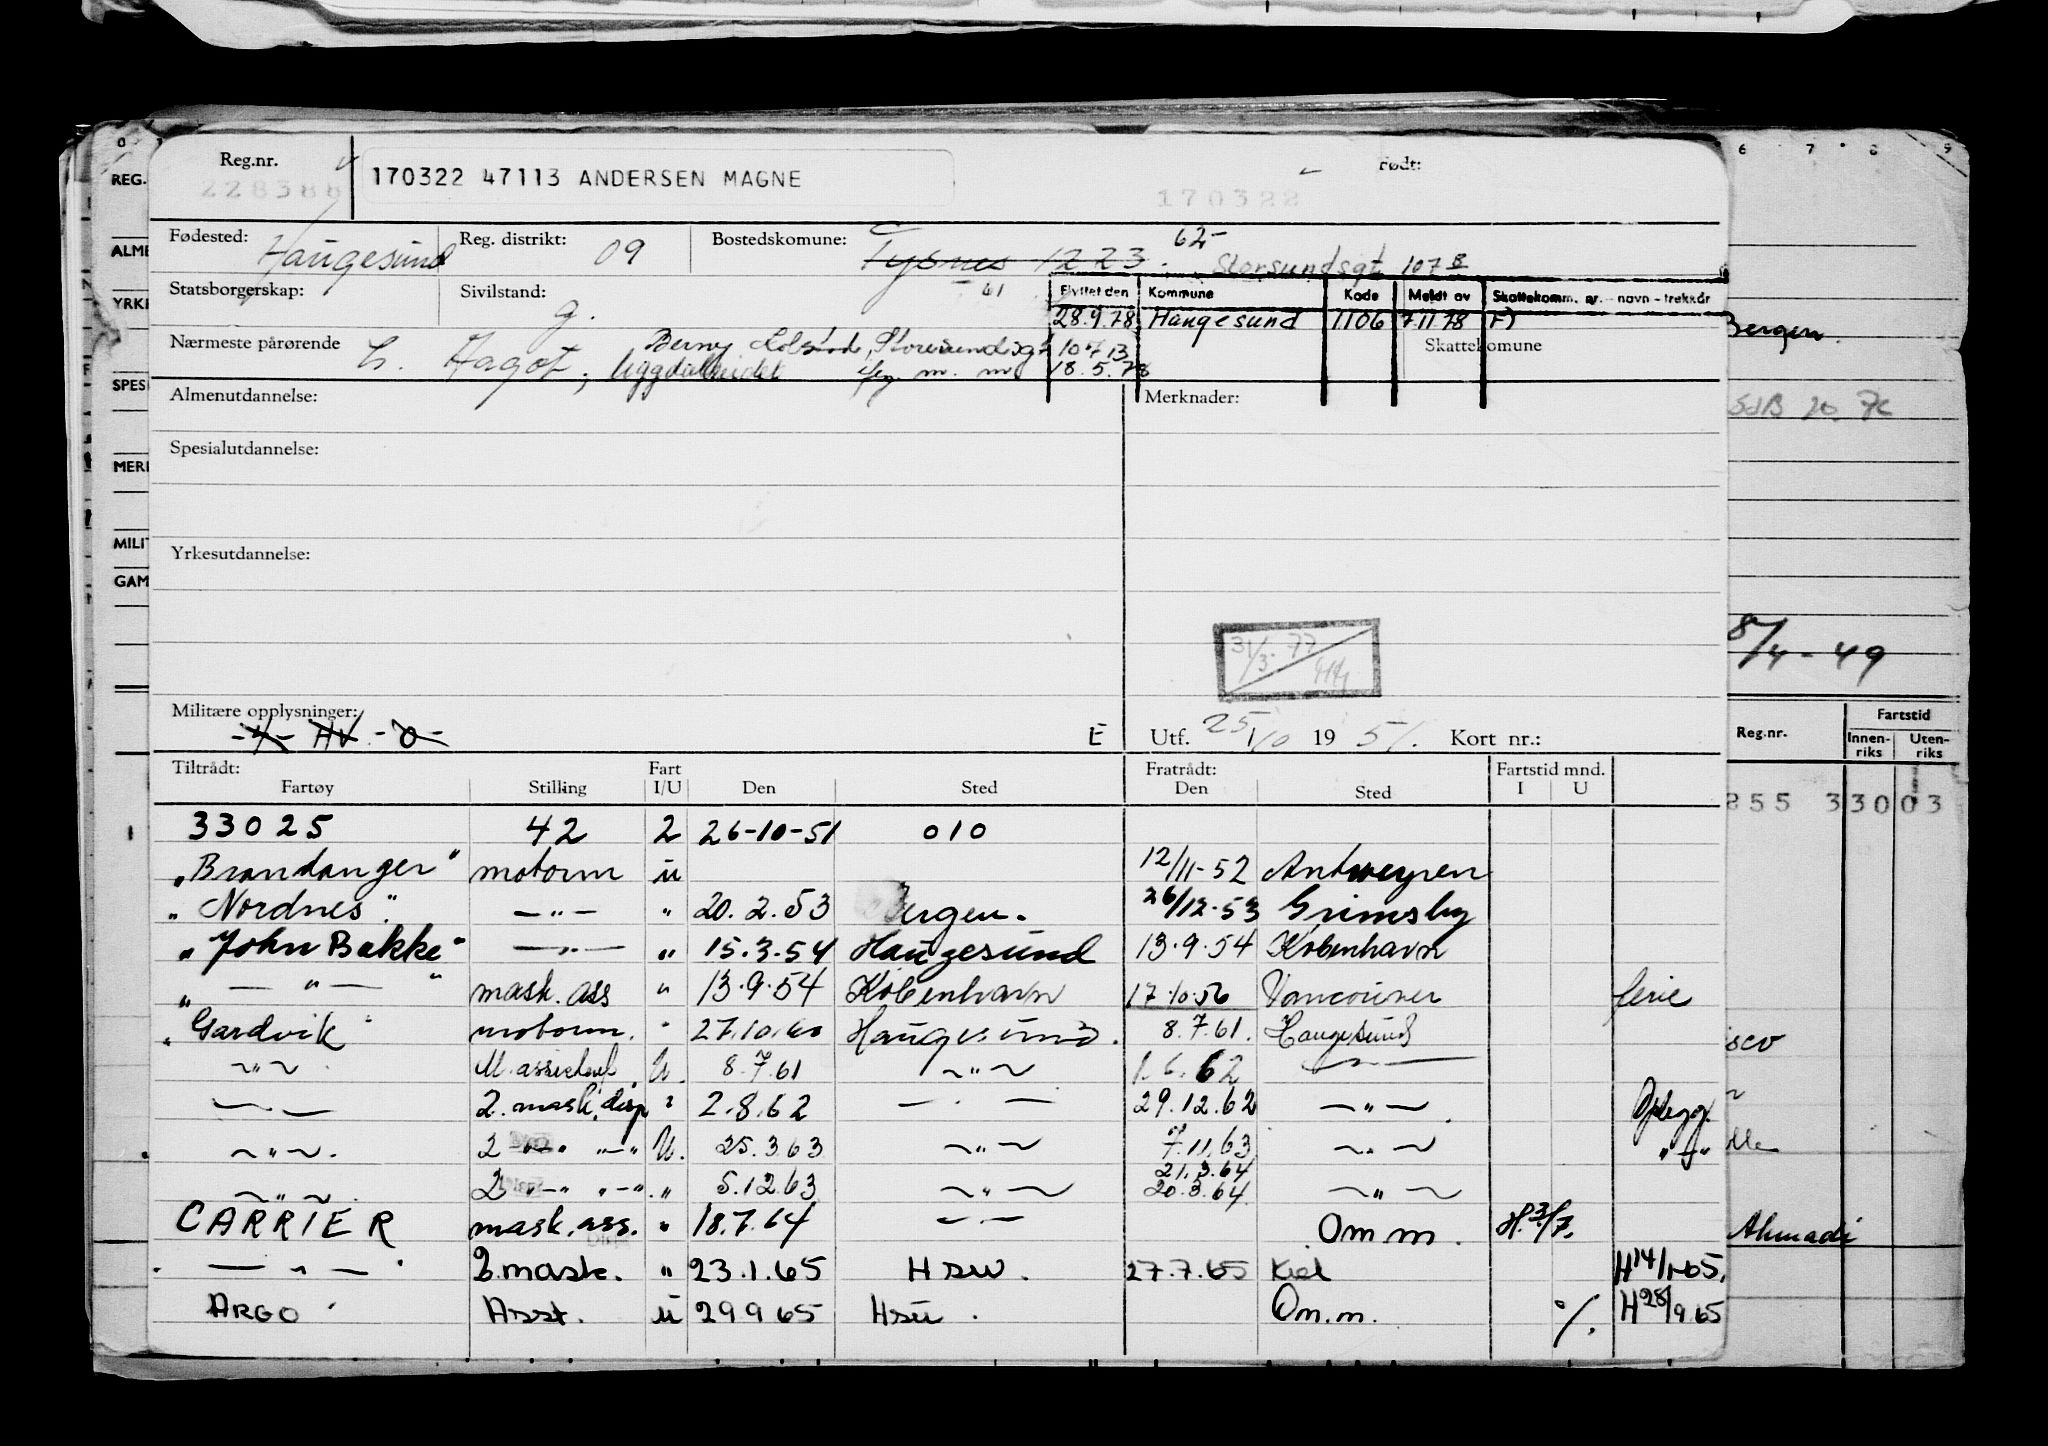 Reg.nr. 170322 47113 ANDERSEN MAGNE Født:
170322
Fødested: Haugesund Reg. distrikt: 09 Bostedskomune: Tysnes 1223. 62- Storsundsgt 107 B
Statsborgerskap: Sivilstand: g. 61 Flyttet den Kommune Kode Meldt av Skattekomm. nr. - navn - trekkår
28.9.78 Haugesund 1106 7.11.78 F)
Nærmeste pårørende h. Hagot, Skattekomune
18.5.78
Almenutdannelse: Merknader:
Spesialutdannelse:
Yrkesutdannelse:
31/3-77
Militære opplysninger: E Utf. 25/10 19 51. Kort nr.:
Tiltrådt: Fart Fratrådt: Fartstid mnd.
Fartøy Stilling I/U Den Sted Den Sted I U
33025 42 2 26-10-51 010
"Brandanger" motorm ü 12/11-52 Antwerpen
"Nordnes". —"— " 20.2.53 Bergen. 26/12.53 Grimsby
"John Bakke" —"— " 15.3.54 Haugesund 13.9.54 København
" —"— " mask. ass " 13.9.54 København 17.10.56 Vancouver ferie
"Gardvik" motorm. " 27.10.60 Haugesund. 8.7.61. Haugesund
—"— M. assistent U. 8.7.61 —"— 1.6.62 —"—
—"— 2. mask. disp " 2.8.62 —"— 29.12.62 —"— Opplegg.
—"—. 2 —"— —"— U. 25.3.63 —"— 7.11.63 —"— "—"
—"—. 2 —"— —"—. " 5.12.63 —"— 21.3.64 20.3.64 —"—
CARRIER mask. ass. " 18.7.64 —"— Om m. H.3/7.
—"— 2. mask. " 23.1.65 Hsu. 27.7.65 Kiel H14/1-65.
ARGO Asst. ü 29 9 65 Hsü. Om.m. %. H28/9 65
REG.
ALME
YRKE
SPESI
MERK
MILIT
GAM
6 7 8 9
Bergen.
8/4-49
Reg.nr. Fartstid
Innen-riks Uten-riks
855 3 30 03
sco
Ahmadi